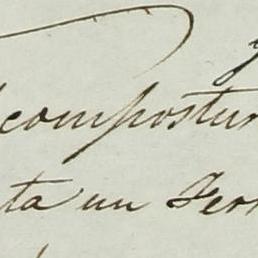 compostur
ta un Fer